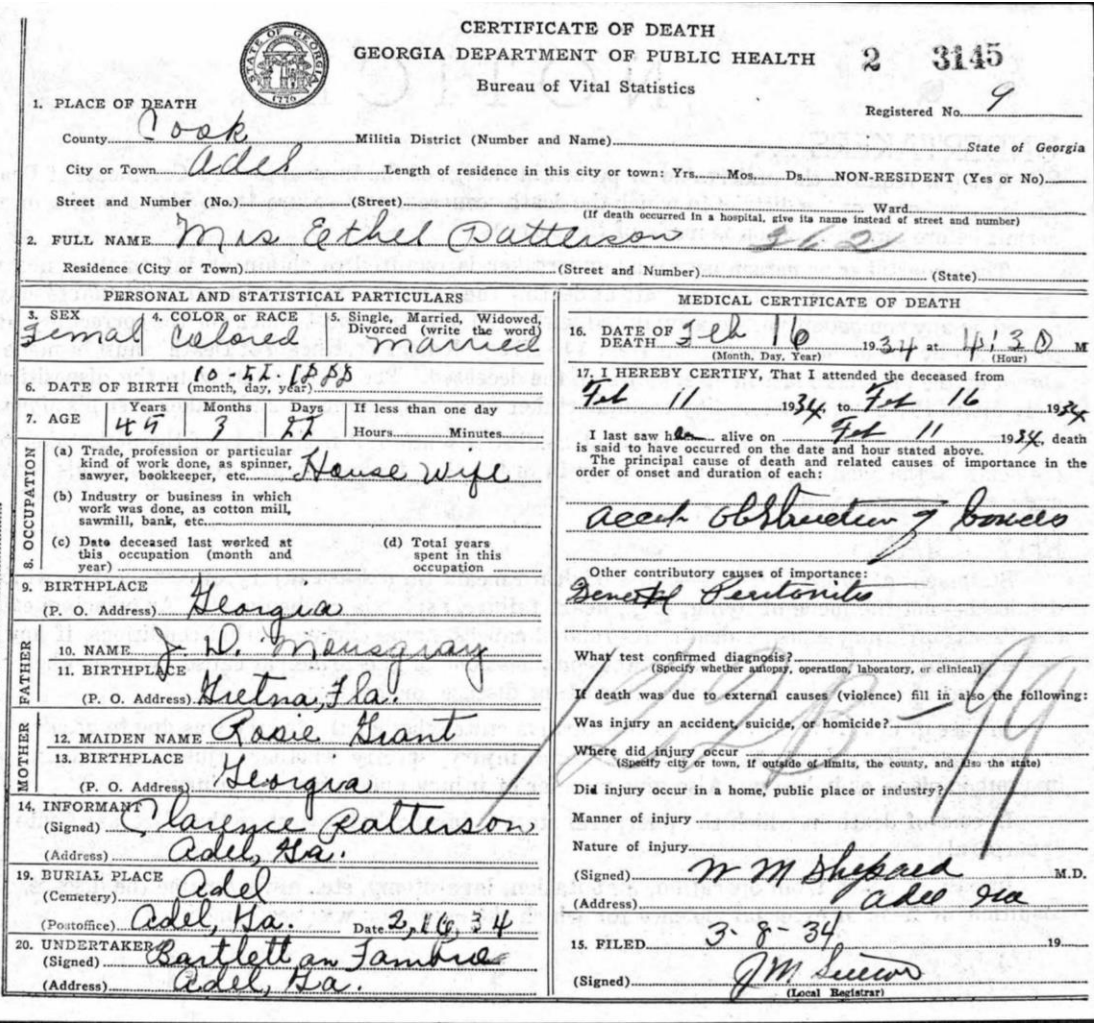 CERTIFICATE OF DEATH
GEORGIA DEPARTMENT OF PUBLIC HEALTH
Bureau of Vital Statistics
2 3145
STATE OF GEORGIA
1776
Registered No. 9
1. PLACE OF DEATH
County Cook Militia District (Number and Name) State of Georgia
City or Town Adel Length of residence in this city or town: Yrs. Mos. Ds. NON-RESIDENT (Yes or No)
Street and Number (No.) (Street) Ward
(If death occurred in a hospital, give its name instead of street and number)
2. FULL NAME Mrs Ethel Patterson 362
Residence (City or Town) (Street and Number) (State)
PERSONAL AND STATISTICAL PARTICULARS
3. SEX 4. COLOR OR RACE 5. Single, Married, Widowed, Divorced (write the word)
Femal Colored Married
6. DATE OF BIRTH (month, day, year) 10-22-1888
7. AGE Years Months Days If less than one day
45 3 22 Hours Minutes
8. OCCUPATION
(a) Trade, profession or particular
kind of work done, as spinner,
sawyer, bookkeeper, etc. House Wife
(b) Industry or business in which
work was done, as cotton mill,
sawmill, bank, etc.
(c) Date deceased last worked at
this occupation (month and
year)
(d) Total years
spent in this
occupation
9. BIRTHPLACE
(P. O. Address) Georgia
FATHER
10. NAME J. D. Mousgray
11. BIRTHPLACE
(P. O. Address) Gretna, Fla.
MOTHER
12. MAIDEN NAME Rosie Grant
13. BIRTHPLACE Georgia
14. INFORMANT
(Signed) Clarence Patterson
(Address) Adel, Ga.
19. BURIAL PLACE
(Cemetery) Adel
(Postoffice) Adel, Ga. Date 2, 16, 34
20. UNDERTAKER
(Signed) Bartlett an
(Address) Adel, Ga.
MEDICAL CERTIFICATE OF DEATH
16. DATE OF DEATH Feb 16 1934 at 4:30 M
(Month, Day, Year) (Hour)
17. I HEREBY CERTIFY, That I attended the deceased from
Feb 11 1934, to Feb 16 1934
I last saw her alive on Feb 11 1934, death
is said to have occurred on the date and hour stated above.
The principal cause of death and related causes of importance in the
order of onset and duration of each:
Obstruction of bowels
Other contributory causes of importance:
General Peritonitis
What test confirmed diagnosis?
(Specify whether autopsy, operation, laboratory, or clinical)
If death was due to external causes (violence) fill in also the following:
Was injury an accident, suicide, or homicide?
Where did injury occur
(Specify city or town, if outside of limits, the county, and also the state)
Did injury occur in a home, public place or industry?
Manner of injury
Nature of injury
122B
(Signed) W M Shepard M.D.
(Address) Adel Ga
15. FILED 3-8-34 19
(Signed) J M
(Local Registrar)